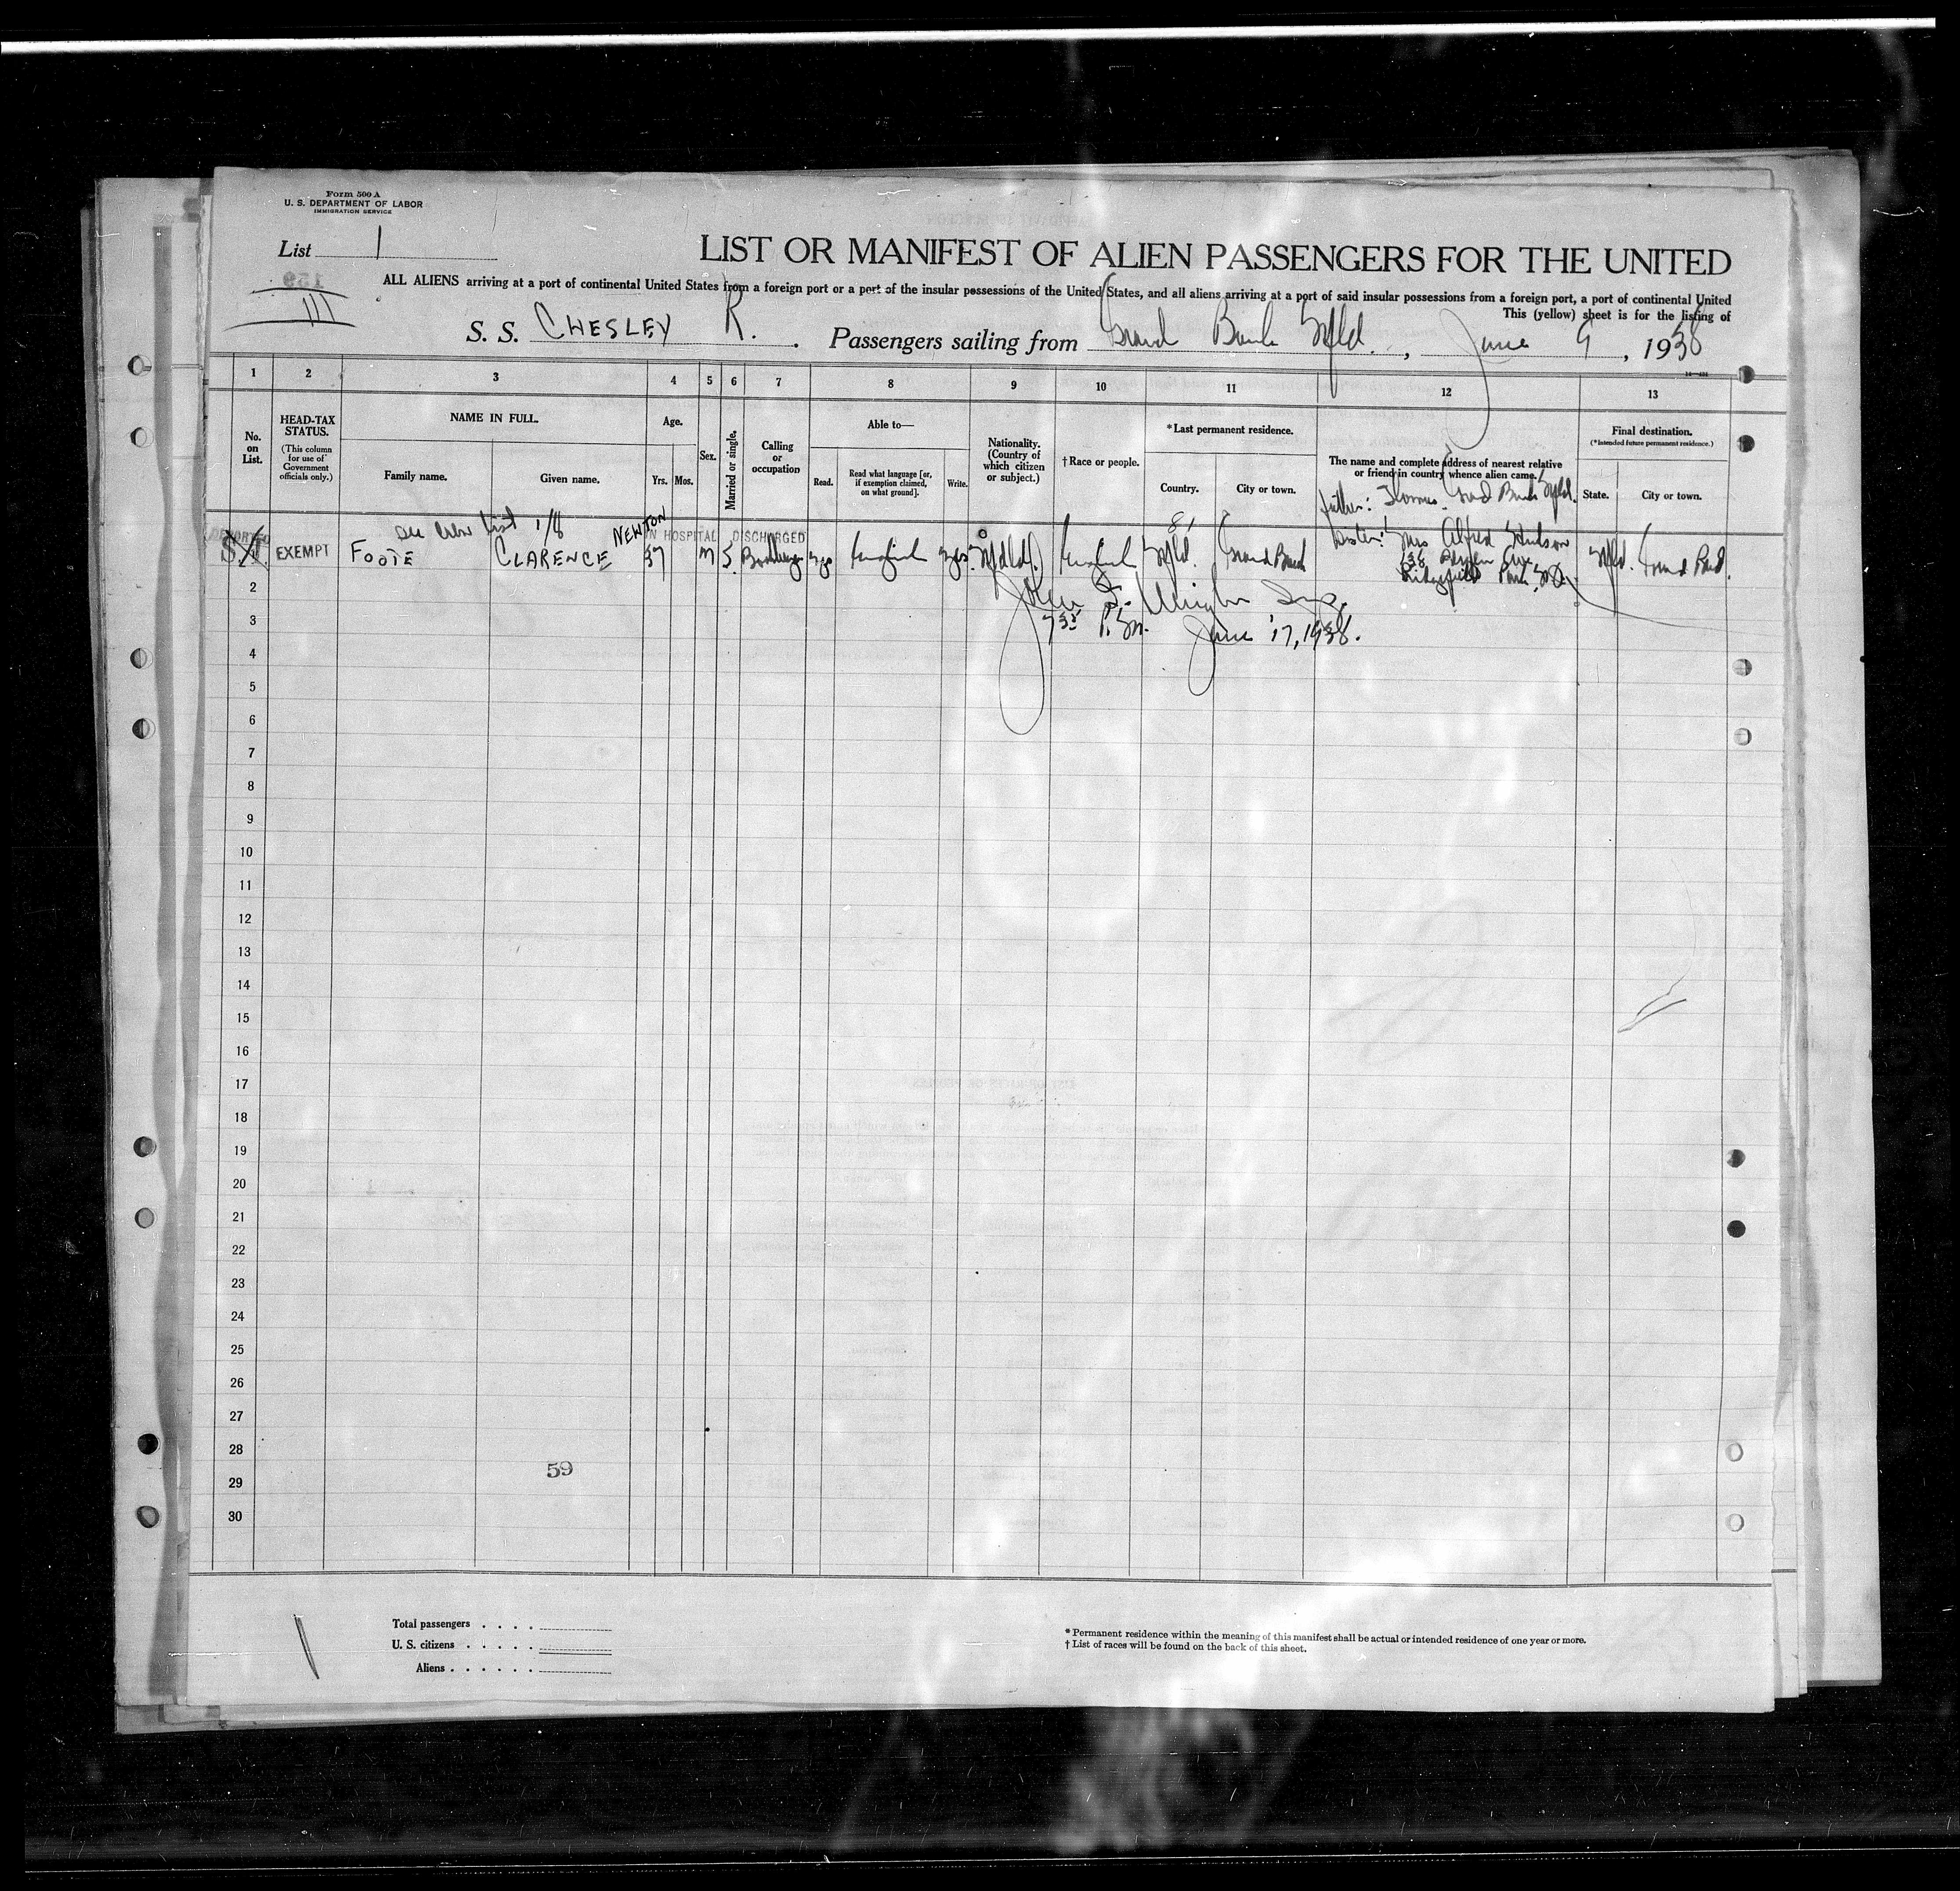 Form 500 A
U. S. DEPARTMENT OF LABOR
IMMIGRATION SERVICE
List 1
159
111
LIST OR MANIFEST OF ALIEN PASSENGERS FOR THE UNITED
ALL ALIENS arriving at a port of continental United States from a foreign port or a port of the insular possessions of the United States, and all aliens arriving at a port of said insular possessions from a foreign port, a port of continental United
This (yellow) sheet is for the listing of
S. S. CHESLEY R. Passengers sailing from Grand Bank Nfld., June 9, 1938
1 2 3 4 5 6 7 8 9 10 11 12 13
No. on List.
HEAD-TAX STATUS.
(This column for use of Government officials only.)
NAME IN FULL.
Family name. Given name.
Age.
Yrs. Mos.
Sex.
Married or single.
Calling or occupation
Able to—
Read. Read what language [or, if exemption claimed, on what ground]. Write.
Nationality. (Country of which citizen or subject.)
† Race or people.
* Last permanent residence.
Country. City or town.
The name and complete address of nearest relative or friend in country whence alien came.
Final destination.
(* Intended future permanent residence.)
State. City or town.
father: Thomas Grand Bank Nfld.
see crew list 1/8
DEPORTED
IN HOSPITAL DISCHARGED
81
1 EXEMPT FOOTE CLARENCE NEWTON 37 M S. yes English yes Nfld English Nfld. Grand Bank Sister: Mrs Alfred Nfld. Grand Bank
138 Ave
Ridgefield Park, N.J.
2
John Insp.
3
7 35 P.M. June 17, 1938.
4
5
6
7
8
9
10
11
12
13
14
15
16
17
18
19
20
21
22
23
24
25
26
27
28
59
29
30
Total passengers
U. S. citizens
Aliens
* Permanent residence within the meaning of this manifest shall be actual or intended residence of one year or more.
† List of races will be found on the back of this sheet.